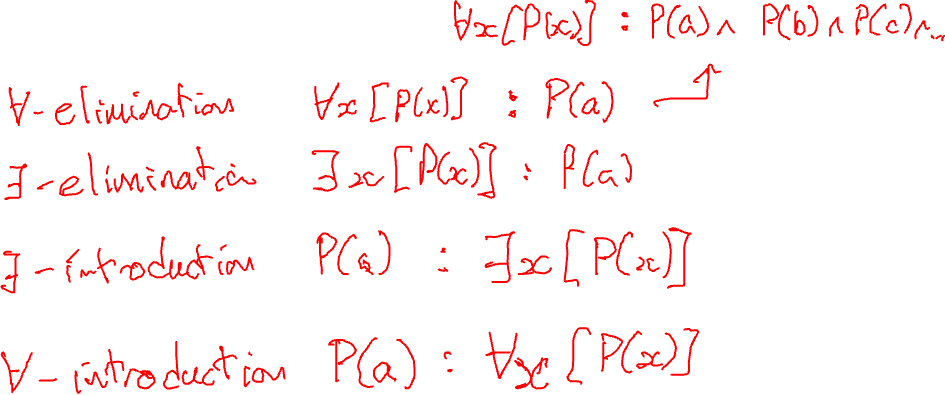 ∀x[P(x)] : P(a) ∧ P(b) ∧ P(c) ∧ ...
∀-elimination ∀x[P(x)] : P(a)
∃-elimination ∃x[P(x)] : P(a)
∃-introduction P(a) : ∃x[P(x)]
∀-introduction P(a) : ∀x[P(x)]